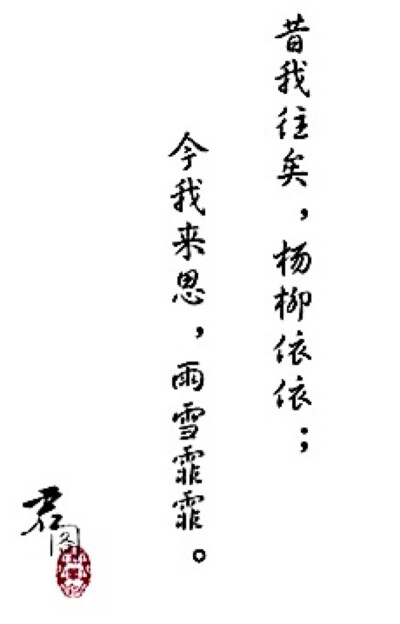 昔我往矣，杨柳依依；
今我来思，雨雪霏霏。
君
图